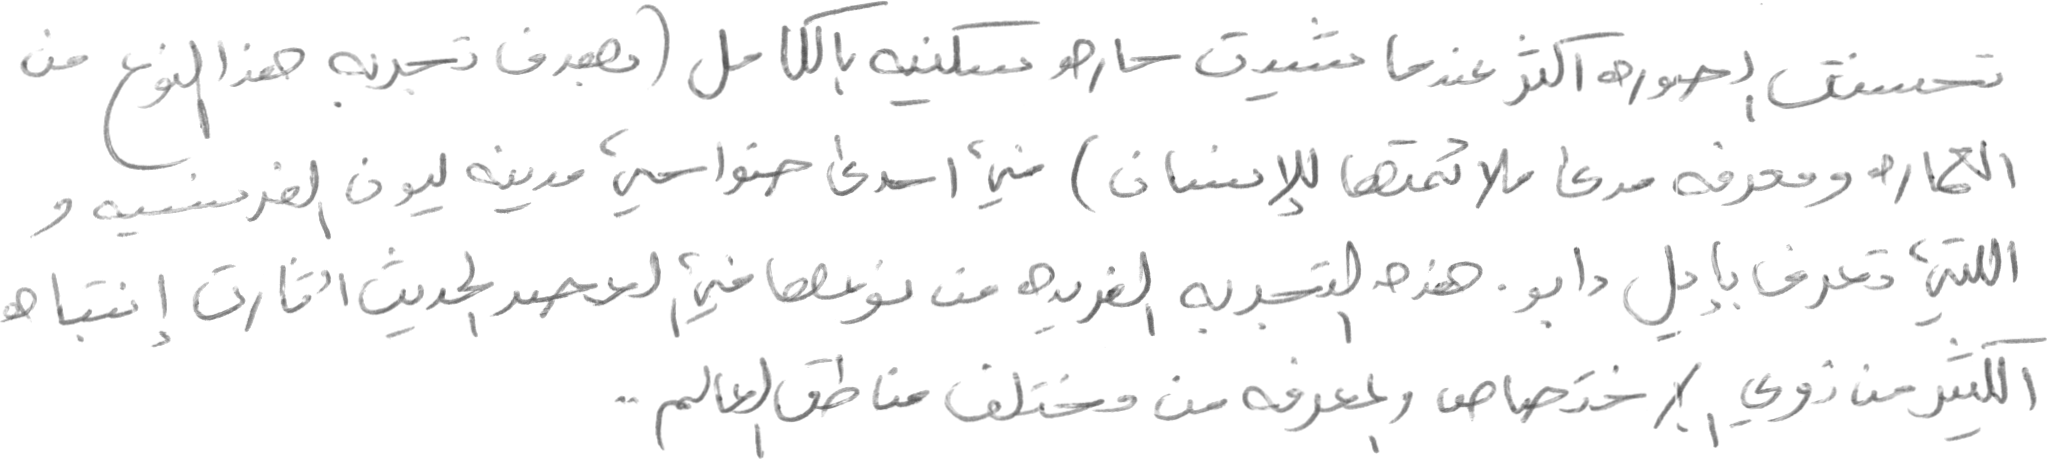 تحسنت الصوره اكثر عندما شيدت حاره سكنيه بالكامل (بهدف تجربه هذا النوع من
العماره ومعرفه مدى ملائمتها للإنسان) في احدى ضواحي مدينه ليون الفرنسيه و
اللتي تعرف بإيل دابو. هذه التجربه الفريده من نوعها في العصر الحديث اثارت إنتباه
الكثير من ذوي الإختصاص والمعرفه من مختلف مناطق العالم ..